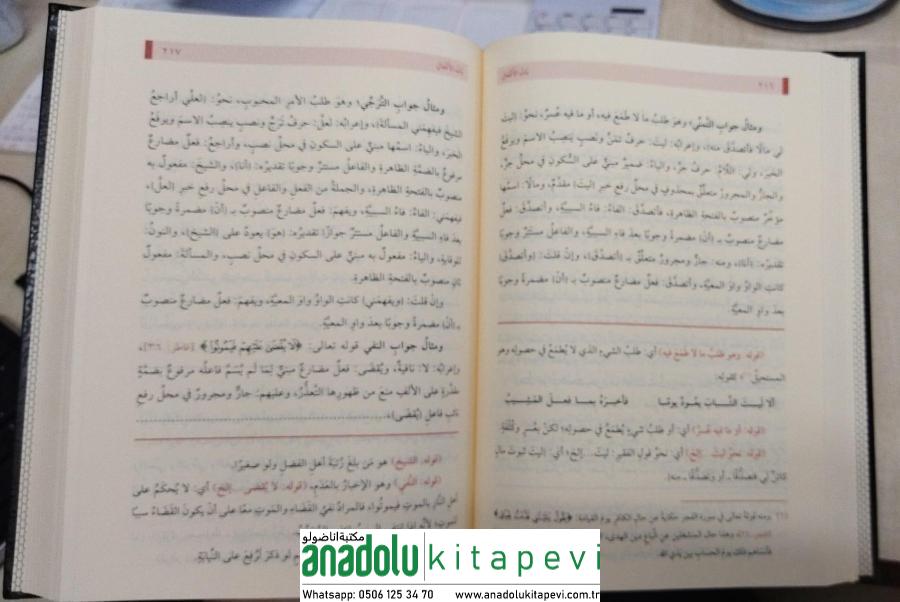 باب الأفعال
٢١٦
ومثالُ جوابِ التَّمنِّي؛ وهو طلبُ ما لا طَمَعَ فيه، أو ما فيه عُسرٌ، نحوُ: (ليتَ
لي مالًا فأتصدَّقَ منه)، وإعرابُه: ليتَ: حرفُ تمنٍّ ونصبٍ ينصِبُ الاسمَ ويرفعُ
الخبرَ، ولي: اللَّامُ: حرفُ جرٍّ، والياءُ: ضميرٌ مبنيٌّ على السُّكونِ في محلِّ جرٍّ،
والجارُّ والمجرورُ متعلِّقٌ بمحذوفٍ في محلِّ رفعٍ خبرِ (ليتَ) مقدَّمٌ، ومالًا: اسمُها
مؤخَّرٌ منصوبٌ بالفتحةِ الظاهرةِ، فأتصدَّقَ: الفاءُ: فاءُ السببيَّةِ، وأتصدَّقَ: فعلٌ
مضارعٌ منصوبٌ بـ (أنْ) مضمرةً وجوبًا بعدَ فاءِ السببيَّةِ، والفاعلُ مستترٌ وجوبًا
تقديرُه: (أنا)، ومنه: جارٌّ ومجرورٌ متعلِّقٌ بـ (أتصدَّقَ)، وإنْ قلتَ: (وأتصدَّقَ)
كانتِ الواوُ واوَ المعيَّةِ، وأتصدَّقَ: فعلٌ مضارعٌ منصوبٌ بـ (أنْ) مضمرةً وجوبًا
بعدَ واوِ المعيَّةِ.
(قوله: وهو طلبُ ما لا طمعَ فيه) أي: طلبُ الشيءِ الذي لا يُطمَعُ في حصولِه وهو
المستحيلُ كقوله:
ألا ليتَ الشَّبابَ يعودُ يومًا فأخبرَه بما فعلَ المشيبُ
(قوله: أو ما فيه عُسرٌ) أي: أو طلبُ شيءٍ يُطمَعُ في حصولِه؛ لكنْ بعُسرٍ وقِلَّةٍ.
(قوله: نحوُ ليتَ...إلخ) أي: نحوُ قولِ الفقيرِ: ليتَ...إلخ؛ أي: (ليتَ ثبوتَ مالٍ
كائنٌ لي فتصدُّقًا، أو وتصدُّقًا، منه).
باب الأفعال
٢١٧
ومثالُ جوابِ التَّرجِّي؛ وهو طلبُ الأمرِ المحبوبِ، نحوُ: (لعلِّي أُراجعُ
الشيخَ فيفهِّمَني المسألةَ)، وإعرابُه: لعلَّ: حرفُ ترجٍّ ونصبٍ ينصِبُ الاسمَ ويرفعُ
الخبرَ، والياءُ: اسمُها مبنيٌّ على السكونِ في محلِّ نصبٍ، وأراجعُ: فعلٌ مضارعٌ
مرفوعٌ بالضمَّةِ الظاهرةِ والفاعلُ مستترٌ وجوبًا تقديرُه: (أنا)، والشيخَ: مفعولٌ به
منصوبٌ بالفتحةِ الظاهرةِ، والجملةُ من الفعلِ والفاعلِ في محلِّ رفعٍ خبرِ (لعلَّ)،
فيفهِّمَني: الفاءُ: فاءُ السببيَّةِ، ويفهِّمَ: فعلٌ مضارعٌ منصوبٌ بـ (أنْ) مضمرةً وجوبًا
بعدَ فاءِ السببيَّةِ والفاعلُ مستترٌ جوازًا تقديرُه: (هو) يعودُ على (الشيخِ)، والنونُ:
للوقايةِ، والياءُ: مفعولٌ به مبنيٌّ على السكونِ في محلِّ نصبٍ، والمسألةَ: مفعولٌ
ثانٍ منصوبٌ بالفتحةِ الظاهرةِ.
وإنْ قلتَ: (ويفهِّمَني) كانتِ الواوُ واوَ المعيَّةِ، ويفهِّمَ: فعلٌ مضارعٌ منصوبٌ
بـ (أنْ) مضمرةً وجوبًا بعدَ واوِ المعيَّةِ.
ومثالُ جوابِ النفيِ قوله تعالى: ﴿لَا يُقْضَىٰ عَلَيْهِمْ فَيَمُوتُوا﴾ [فاطر: ٣٦]،
وإعرابُه: لا: نافيةٌ، ويُقضَى: فعلٌ مضارعٌ مبنيٌّ لِمَا لم يُسَمَّ فاعلُه مرفوعٌ بضمَّةٍ
مقدَّرةٍ على الألفِ منعَ من ظهورِها التَّعذُّرُ، وعليهم: جارٌّ ومجرورٌ في محلِّ رفعٍ
نائبِ فاعلِ (يُقضَى)،
(قوله: الشيخَ) هو مَن بلغَ رُتبةَ أهلِ الفضلِ ولو صغيرًا.
(قوله: النَّفيِ) وهو الإخبارُ بالعَدَمِ. (قوله: لا يُقضَى...إلخ) أي: لا يُحكَمُ على
أهلِ النَّارِ بالموتِ فيموتُوا، فالمرادُ نفيُ القضاءِ والموتِ معًا على أنْ يكونَ القضاءُ سببًا
مكتبة اناضولو
anadolu kitapevi
Whatsapp: 0506 125 34 70 www.anadolukitapevi.com.tr